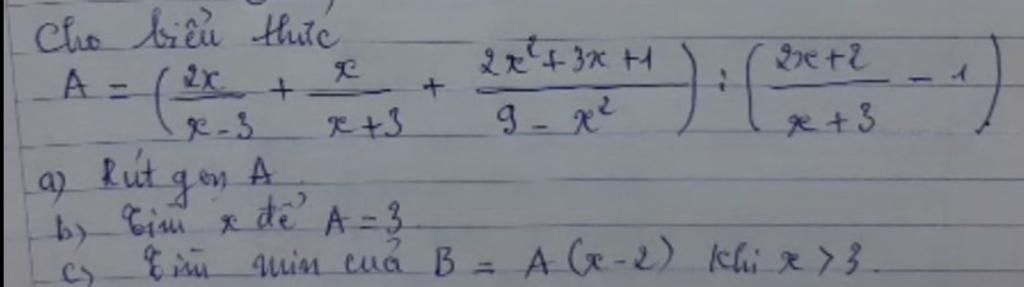 Cho biểu thức
A = (2x/(x-3) + x/(x+3) + (2x²+3x+1)/(9-x²)) : ((2x+2)/(x+3) - 1)
a) Rút gọn A
b) Tìm x để A = 3.
c) Tìm min của B = A(x-2) khi x > 3.